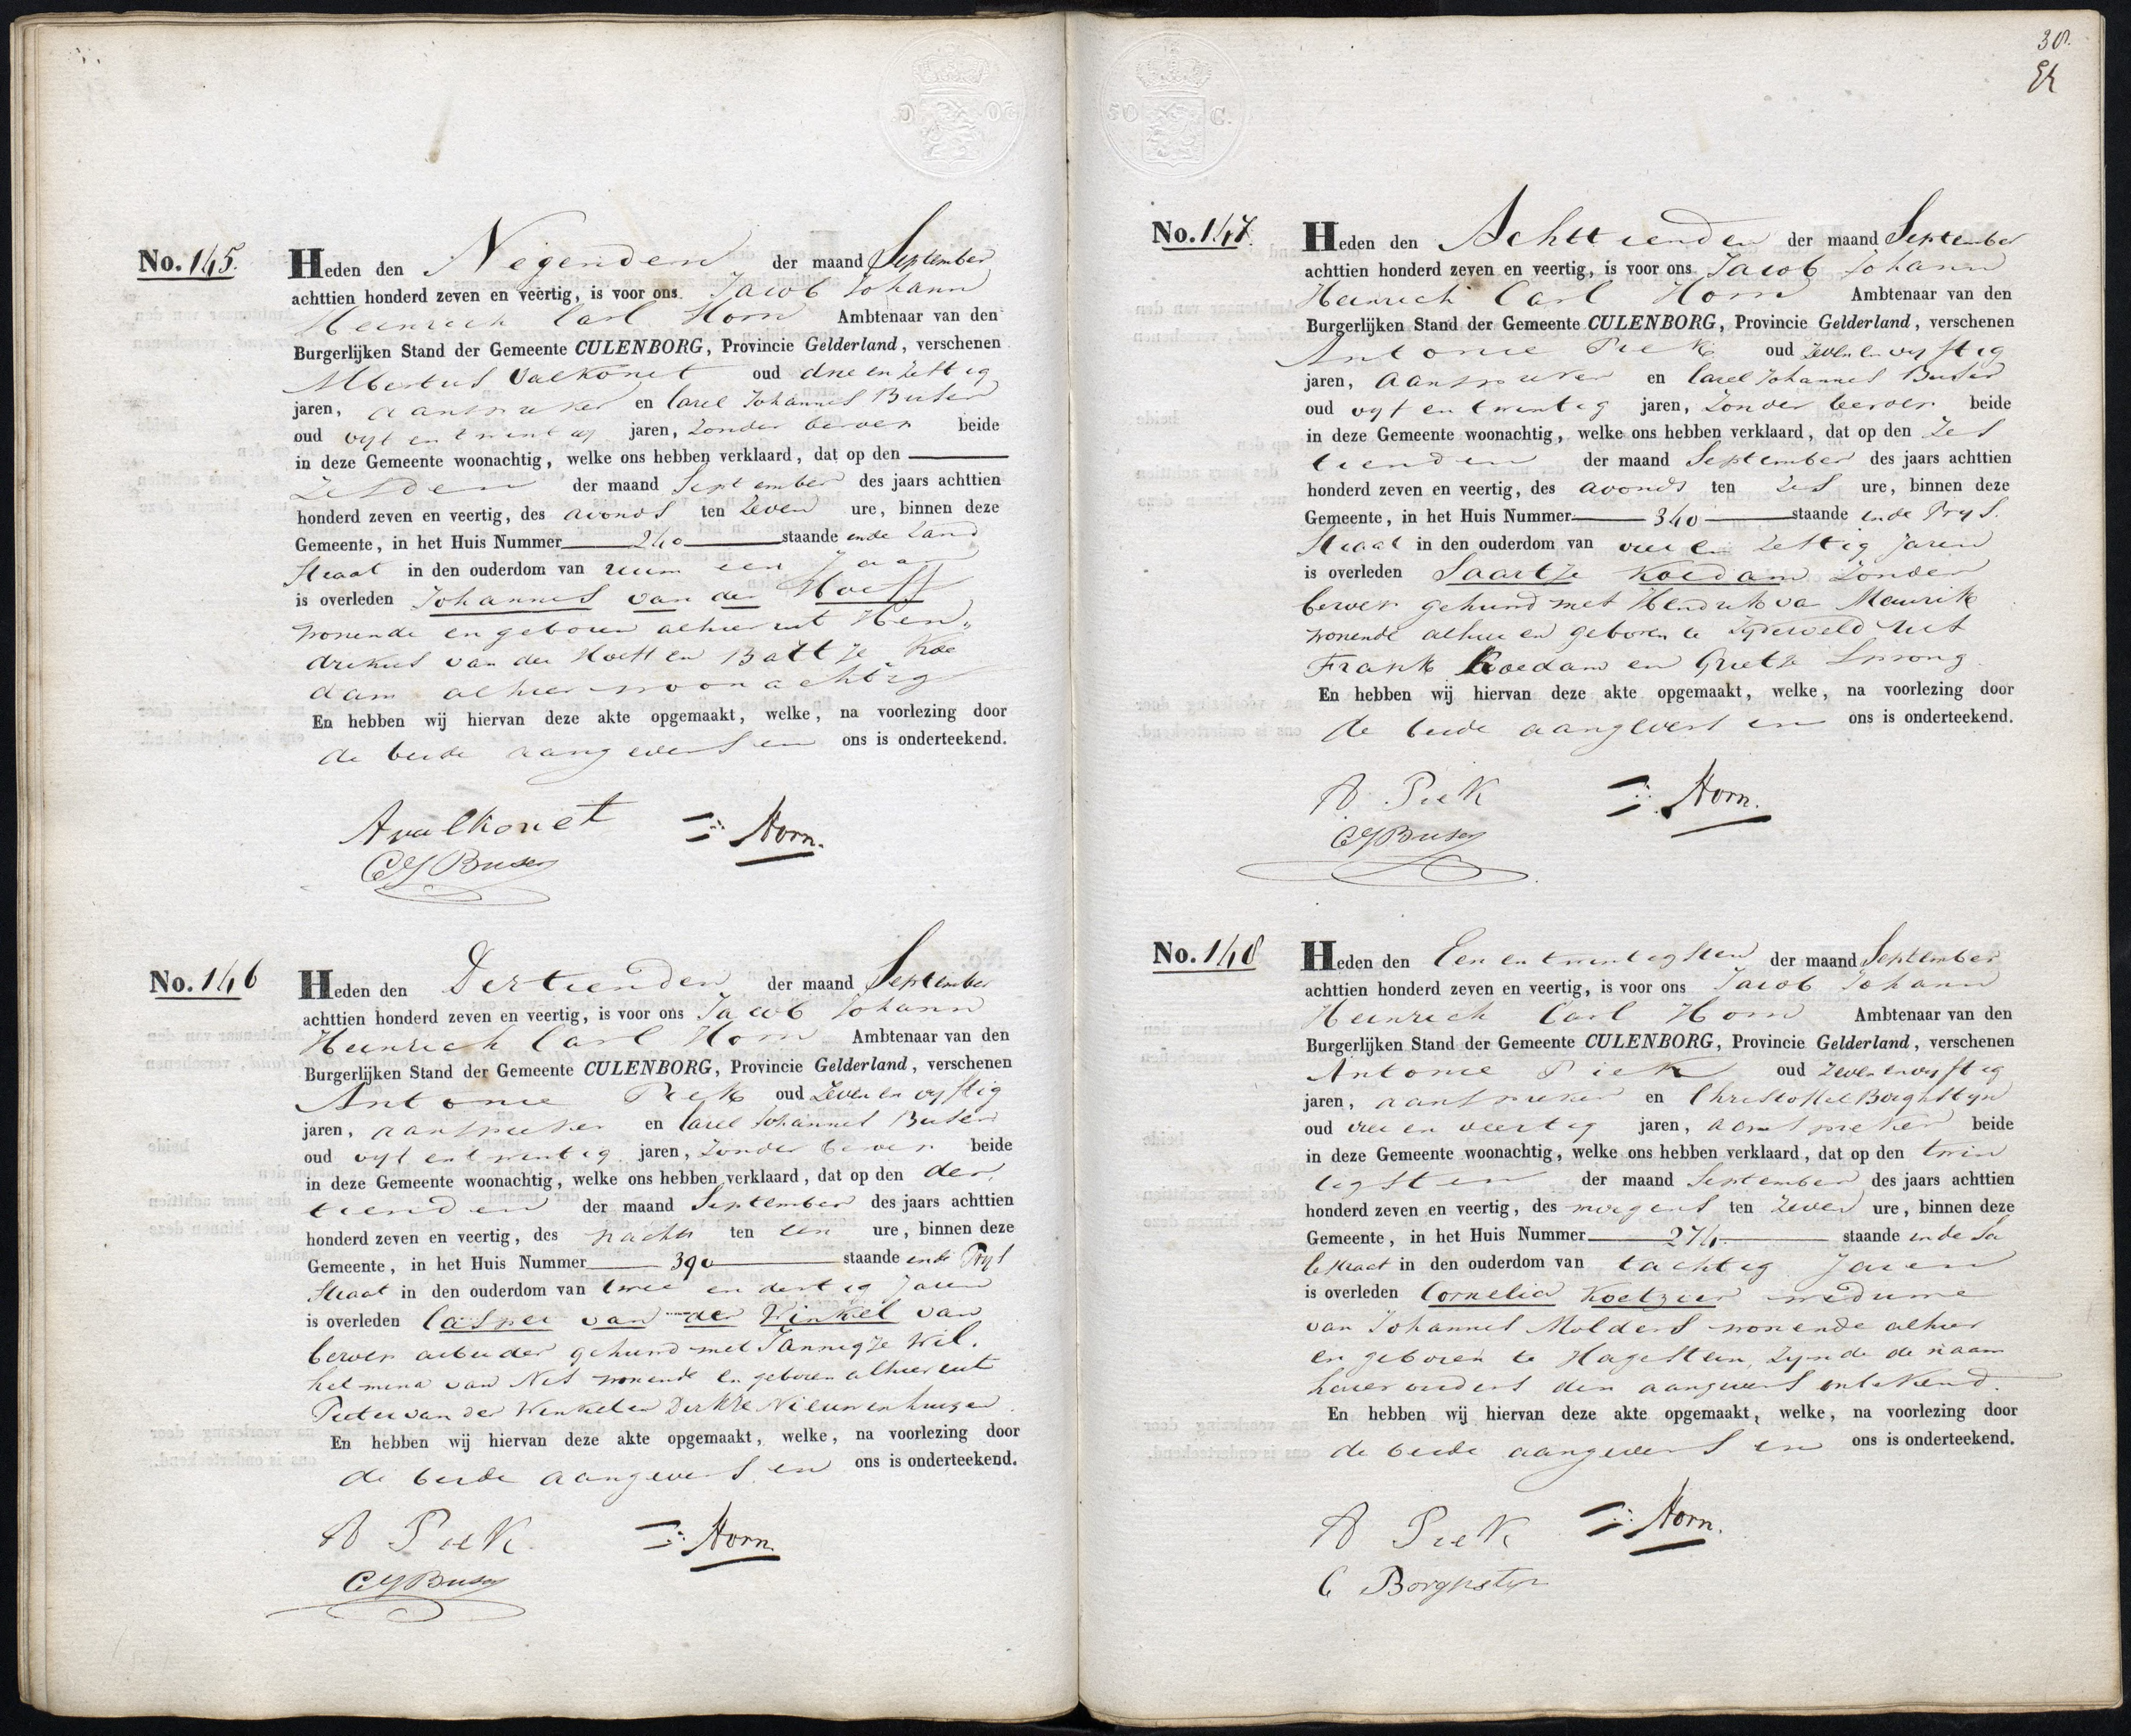 No. 145.
Heden den Negenden der maand September
achttien honderd zeven en veertig, is voor ons Jacob Johann
Heinrich Carl Horn Ambtenaar van den
Burgerlijken Stand der Gemeente CULENBORG, Provincie Gelderland, verschenen
Albertus Valkonet oud drie en zestig
jaren, aanspreker en Carel Johannes Buser
oud vyf en twintig jaren, zonder beroep beide
in deze Gemeente woonachtig, welke ons hebben verklaard, dat op den
zesden der maand September des jaars achttien
honderd zeven en veertig, des avonds ten zeven ure, binnen deze
Gemeente, in het Huis Nummer 240 staande in de Zand
Straat in den ouderdom van ruim een Jaar
is overleden Johannes van der Hoeff
wonende en geboren alhier uit Hen„
drikus van der Hoeff en Battje Koe
dam alhier woonachtig
En hebben wij hiervan deze akte opgemaakt, welke, na voorlezing door
de beide aangevers en ons is onderteekend.
A valkonet Horn.
CJ Buser
No. 146
Heden den Dertienden der maand September
achttien honderd zeven en veertig, is voor ons Jacob Johann
Heinrich Carl Horn Ambtenaar van den
Burgerlijken Stand der Gemeente CULENBORG, Provincie Gelderland, verschenen
Antonie Piek oud zeven en vyftig
jaren, aanspreker en Carel Johannes Buser
oud vyf en twintig jaren, zonder beroep beide
in deze Gemeente woonachtig, welke ons hebben verklaard, dat op den der
tienden der maand September des jaars achttien
honderd zeven en veertig, des nachts ten een ure, binnen deze
Gemeente, in het Huis Nummer 390 staande in de Prys
Straat in den ouderdom van twee en dertig Jaren
is overleden Casper van der Winkel van
beroep arbeider gehuwd met Jannigje Wil.
helmina van Nes wonende en geboren alhier uit
Pieter van der Winkel en Dirkje Nieuwenhuizen.
En hebben wij hiervan deze akte opgemaakt, welke, na voorlezing door
de beide aangevers en ons is onderteekend.
A Piek Horn.
CJ Buser
38.
No. 147.
Heden den Achttienden der maand September
achttien honderd zeven en veertig, is voor ons Jacob Johann
Heinrich Carl Horn Ambtenaar van den
Burgerlijken Stand der Gemeente CULENBORG, Provincie Gelderland, verschenen
Antonie Piek oud zeven en vyftig
jaren, aanspreker en Carel Johannes Buser
oud vyf en twintig jaren, zonder beroep beide
in deze Gemeente woonachtig, welke ons hebben verklaard, dat op den zes
tienden der maand September des jaars achttien
honderd zeven en veertig, des avonds ten zes ure, binnen deze
Gemeente, in het Huis Nummer 340 staande in de Prys.
Straat in den ouderdom van vier en zestig Jaren
is overleden Saartje Koedam zonder
beroep gehuwd met Hendrik van Maurik
wonende alhier en geboren te Zyderveld uit
Frank Koedam en Grietje Sprong.
En hebben wij hiervan deze akte opgemaakt, welke, na voorlezing door
de beide aangevers en ons is onderteekend.
A Piek Horn.
CJ Buser
No. 148
Heden den Een en twintigsten der maand September
achttien honderd zeven en veertig, is voor ons Jacob Johann
Heinrich Carl Horn Ambtenaar van den
Burgerlijken Stand der Gemeente CULENBORG, Provincie Gelderland, verschenen
Antonie Piek oud zeven en vyftig
jaren, aanspreker en Christoffel Borghstyn
oud vier en veertig jaren, aanspreker beide
in deze Gemeente woonachtig, welke ons hebben verklaard, dat op den twin
tigsten der maand September des jaars achttien
honderd zeven en veertig, des morgens ten zeven ure, binnen deze
Gemeente, in het Huis Nummer 274 staande in de Sa
lestraat in den ouderdom van tachtig Jaren
is overleden Cornelia Koetzier weduwe
van Johannes Molders wonende alhier
en geboren te Hagestein, zynde de naam
harer ouders den aangevers onbekend.
En hebben wij hiervan deze akte opgemaakt, welke, na voorlezing door
de beide aangevers en ons is onderteekend.
A Piek Horn.
C Borghstyn